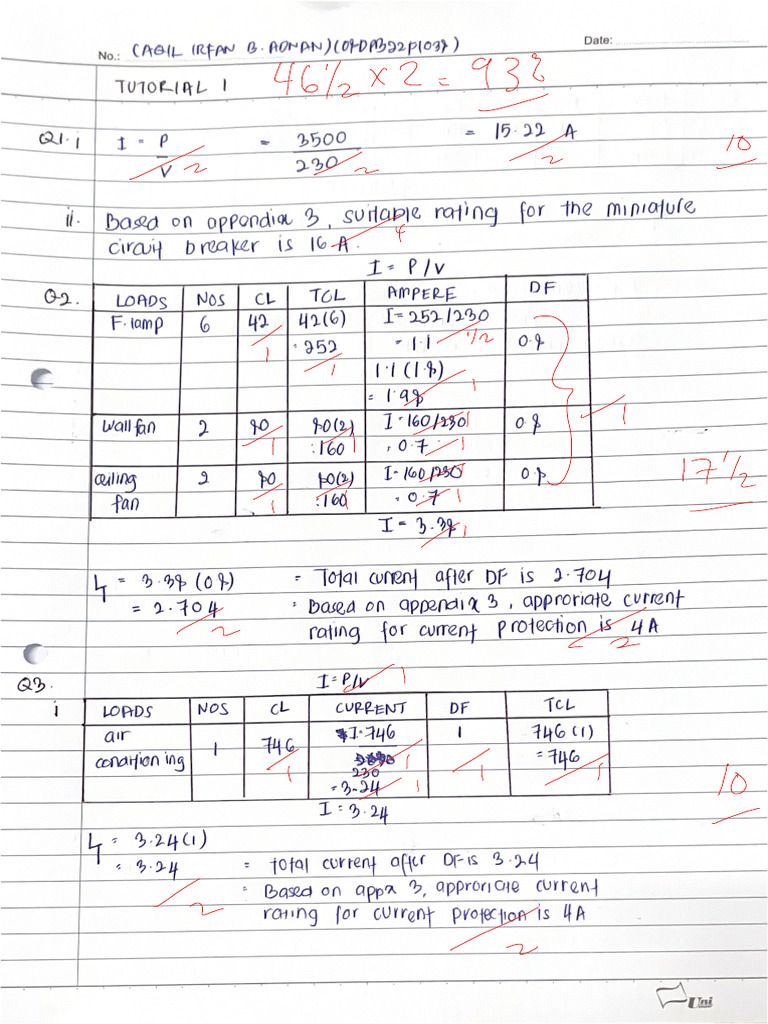 No.: (AQIL IRFAN B. ADNAN) (08DPB22F1038) Date:
TUTORIAL 1 46 1/2 x 2 = 93%
Q1. i I = P/V 2 = 3500/230 2 = 15.22 A 2 10
ii. Based on appendix 3, suitable rating for the miniature
circuit breaker is 16 A. 4
I = P/V
Q2. LOADS NOS CL TCL AMPERE DF
F. lamp 6 42 42(6) I = 252/230
1 = 252 = 1.1 1/2 0.8
1 1.1 (1.8)
= 1.98 1
1
wall fan 2 80 80(2) I = 160/230 1 0.8
1 = 160 1 = 0.7 1
17 1/2
ceiling 2 80 80(2) I = 160/230 0.8
fan 1 = 160 1 = 0.7 1
I = 3.38 1
IT = 3.38 (0.8) = Total current after DF is 2.704
= 2.704 2 = Based on appendix 3, approriate current
rating for current protection is 4A
2
Q3. I = P/V 1
i LOADS NOS CL CURRENT DF TCL
air I = 746 1 746 (1)
conditioning 1 746 230 1 = 746
1 = 3.24 1 1 1
10
I = 3.24
IT = 3.24 (1)
= 3.24 = total current after DF is 3.24
2 = Based on appx 3, approriate current
rating for current protection is 4A
2
Uni